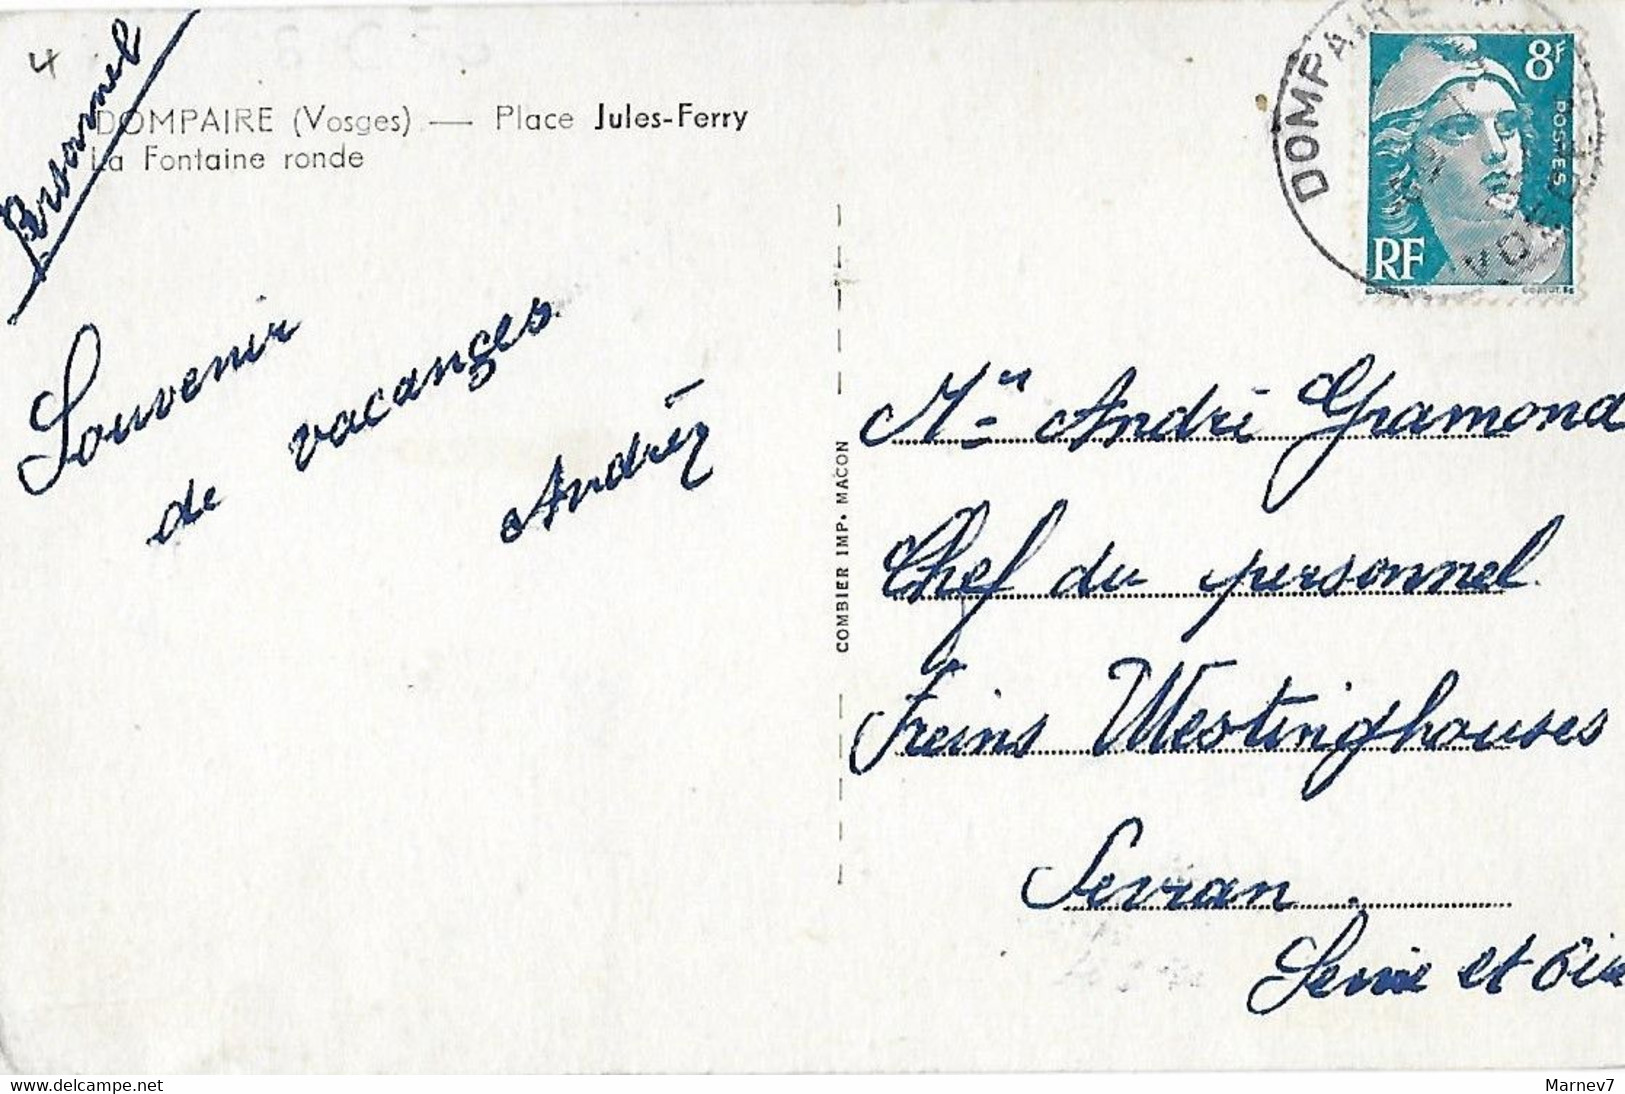 4
Personnel
DOMPAIRE (Vosges) — Place Jules-Ferry
La Fontaine ronde
Souvenir
de vacances
COMBIER IMP. MACON
DOMPAIRE
VOSGES
8F
POSTES
RF
Mr André Gramond
Chef du personnel
Freins Westinghouses
Sevran.
Seine et Oise
Delcampe.net
Marnev7